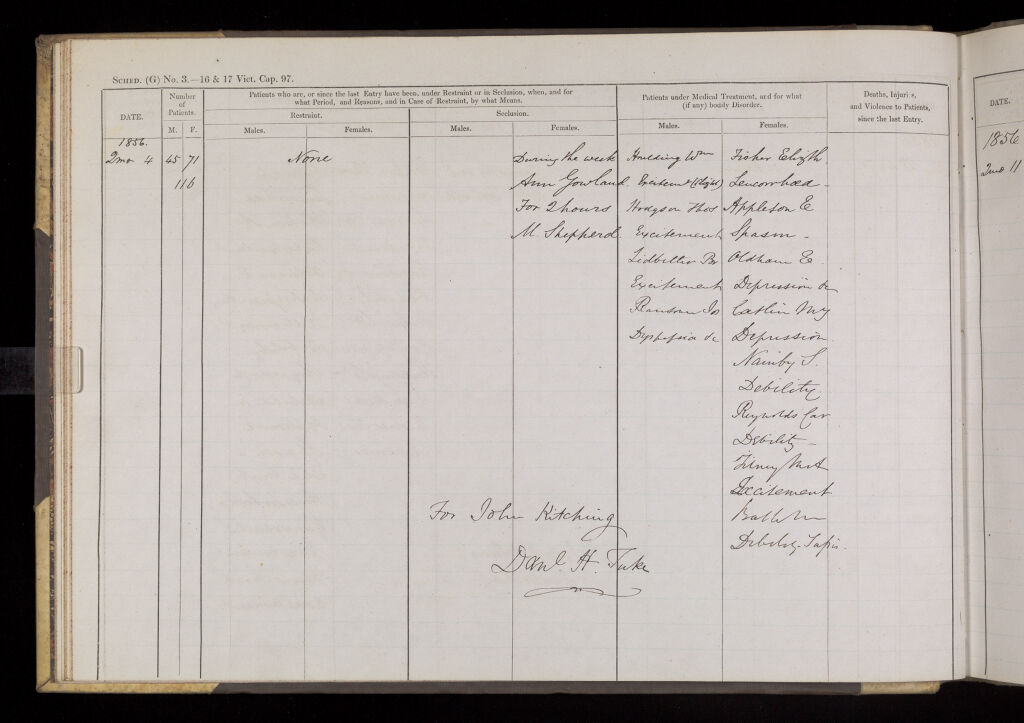 SCHED. (G) No. 3.—16 & 17 Vict. Cap. 97.
DATE.
Number of Patients.
M. F.
Patients who are, or since the last Entry have been, under Restraint or in Seclusion, when, and for
what Period, and Reasons, and in Case of Restraint, by what Means.
Restraint.
Males. Females.
Seclusion.
Males. Females.
Patients under Medical Treatment, and for what
(if any) bodily Disorder.
Males. Females.
Deaths, Injuries,
and Violence to Patients,
since the last Entry.
1856.
2mo 4 45 71
116
None
During the week
Ann Gowland
For 2 hours
M. Shepperd.
Houlding Wm
Excitemt (slight)
Hodgson Thos
Excitement
Excitement
Ransom Js
Dyspepsia &c
Fisher Elizth
Leucorrhoea -
Appleton E
Spasm -
Oldham E.
Depression &c
Catlin My
Depression
Nainby S.
Debility.
Reynolds Car
Debility -
Excitement
Debility.
For John Kitching
Danl. H. Tuke
DATE.
1856
2mo 11